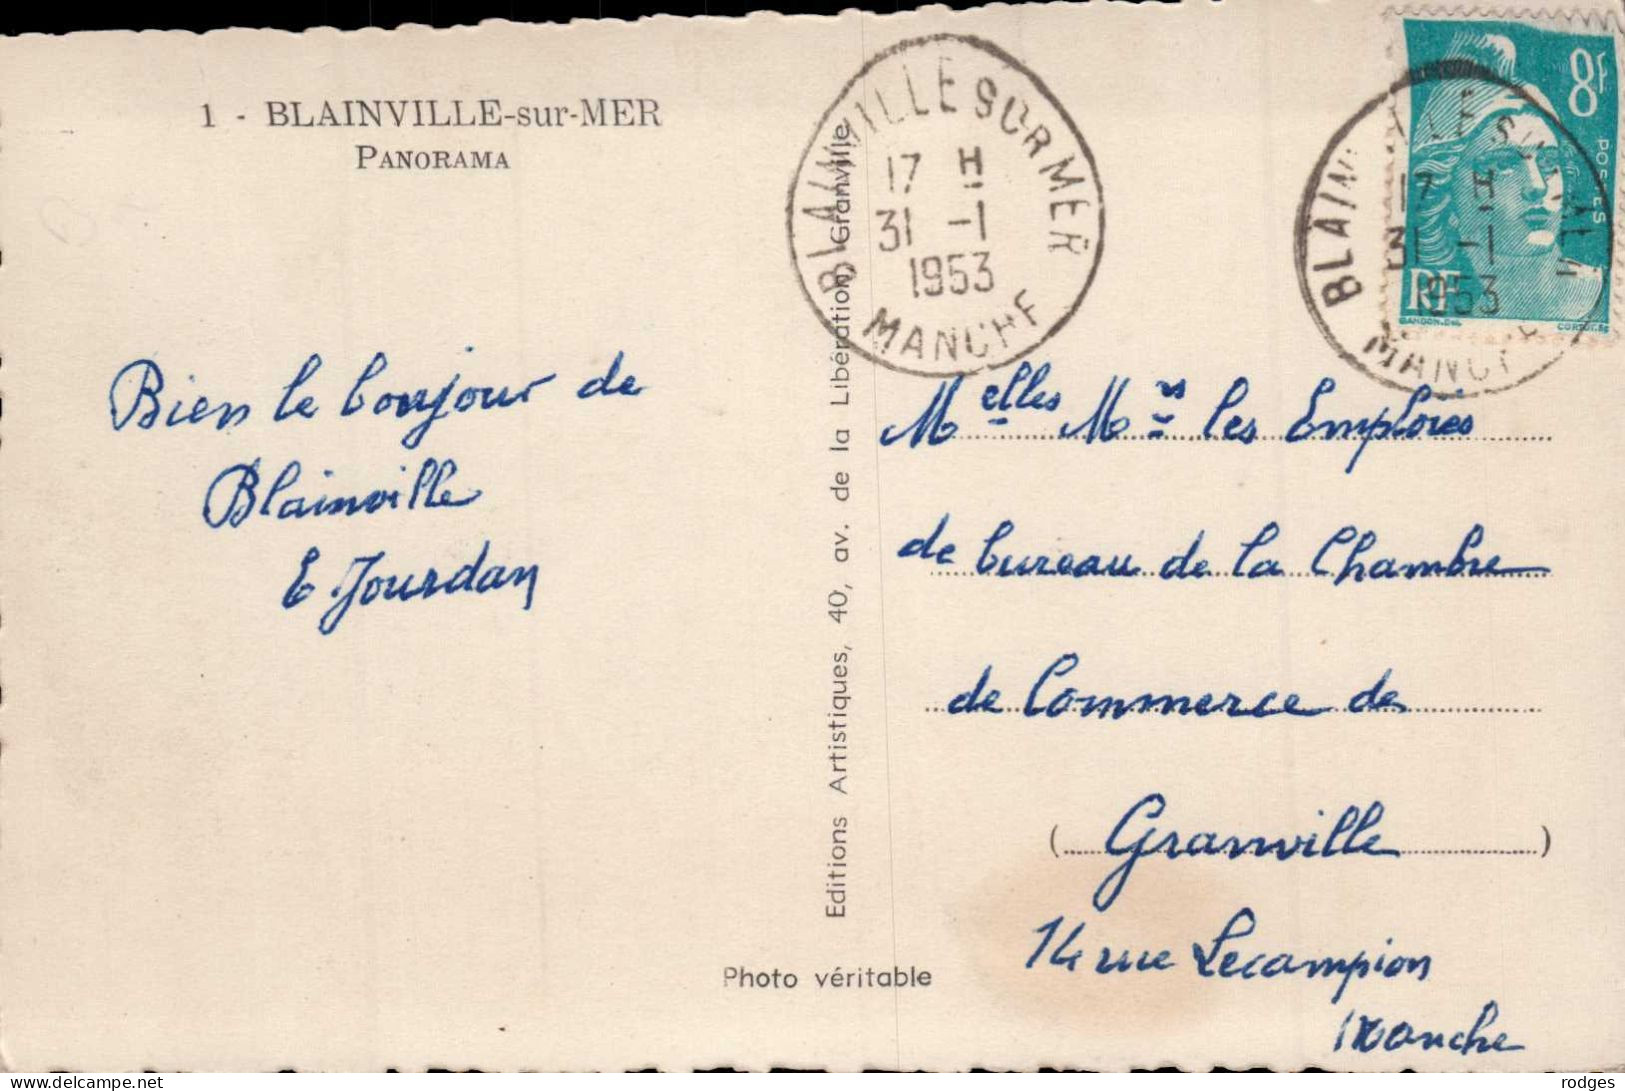 1 - BLAINVILLE-sur-MER
PANORAMA
Bien le bonjour de
Blainville
E Jourdan
Editions Artistiques, 40, av. de la Libération, Granville
Photo véritable
BLAINVILLE SUR MER
17 H
31 -1
1953
MANCHE
8F
POSTES
RF
GANDON.DEL
BLAINVILLE SUR MER
17 H
31 -1
1953
MANCHE
Melles Mrs les Emploiés
de bureau de la Chambre
de Commerce de
(Granville)
14 rue Lecampion
Manche
delcampe.net
rodges